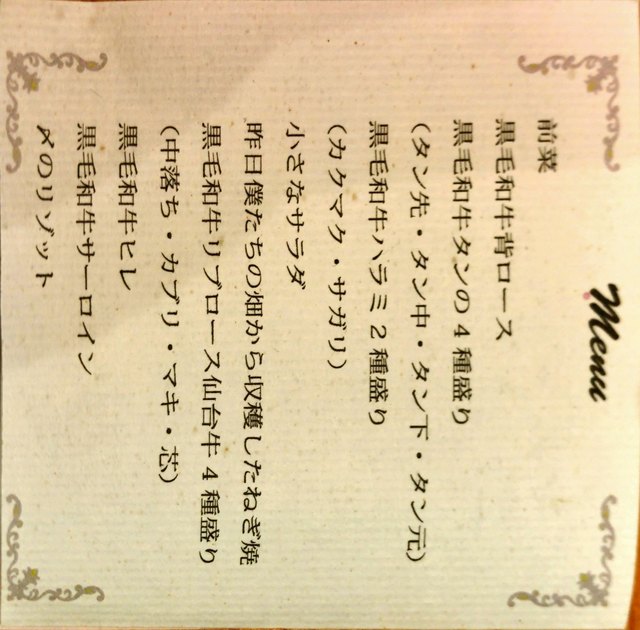 Menu
前菜
黒毛和牛背ロース
黒毛和牛タンの4種盛り
(タン先・タン中・タン下・タン元)
黒毛和牛ハラミ2種盛り
(カクマク・サガリ)
小さなサラダ
昨日僕たちの畑から収穫したねぎ焼
黒毛和牛リブロース仙台牛4種盛り
(中落ち・カブリ・マキ・芯)
黒毛和牛ヒレ
黒毛和牛サーロイン
〆のリゾット